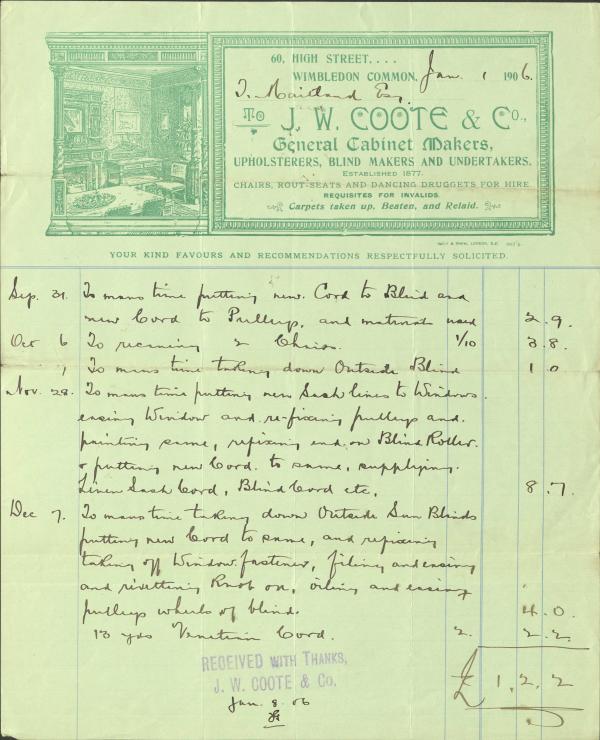 60, HIGH STREET, . . . .
WIMBLEDON COMMON, Jan. 1 1906.
T. Maitland Esq.
To J. W. COOTE & Co.,
General Cabinet Makers,
UPHOLSTERERS, BLIND MAKERS AND UNDERTAKERS.
ESTABLISHED 1877.
CHAIRS, ROUT-SEATS AND DANCING DRUGGETS FOR HIRE
REQUISITES FOR INVALIDS.
Carpets taken up, Beaten, and Relaid.
YOUR KIND FAVOURS AND RECOMMENDATIONS RESPECTFULLY SOLICITED.
Sep. 31. To mans time putting new Cord to Blind and
new Cord to Pulleys, and materials used 2.9.
Oct 6 To recaning 2 Chairs. 1/10 3.8.
, To mans time taking down Outside Blind 1 0
Nov. 28. To mans time putting new Sash lines to Windows.
easing Window and re-fixing pulleys and.
painting same, refixing end on Blind Roller.
& putting new Cord. to same, supplying.
Linen Sash Cord, Blind Cord etc, 8.7.
Dec 7. To mans time taking down Outside Sun Blinds
putting new Cord to same, and refixing
taking off Window fastener, filing and easing
and rivetting Knob on, oiling and easing
pulleys wheels of blind. 4.0.
13 yds Venetian Cord. 2. 2.2
£ 1. 2. 2
RECEIVED WITH THANKS,
J. W. COOTE & Co.
Jan. 8. 06